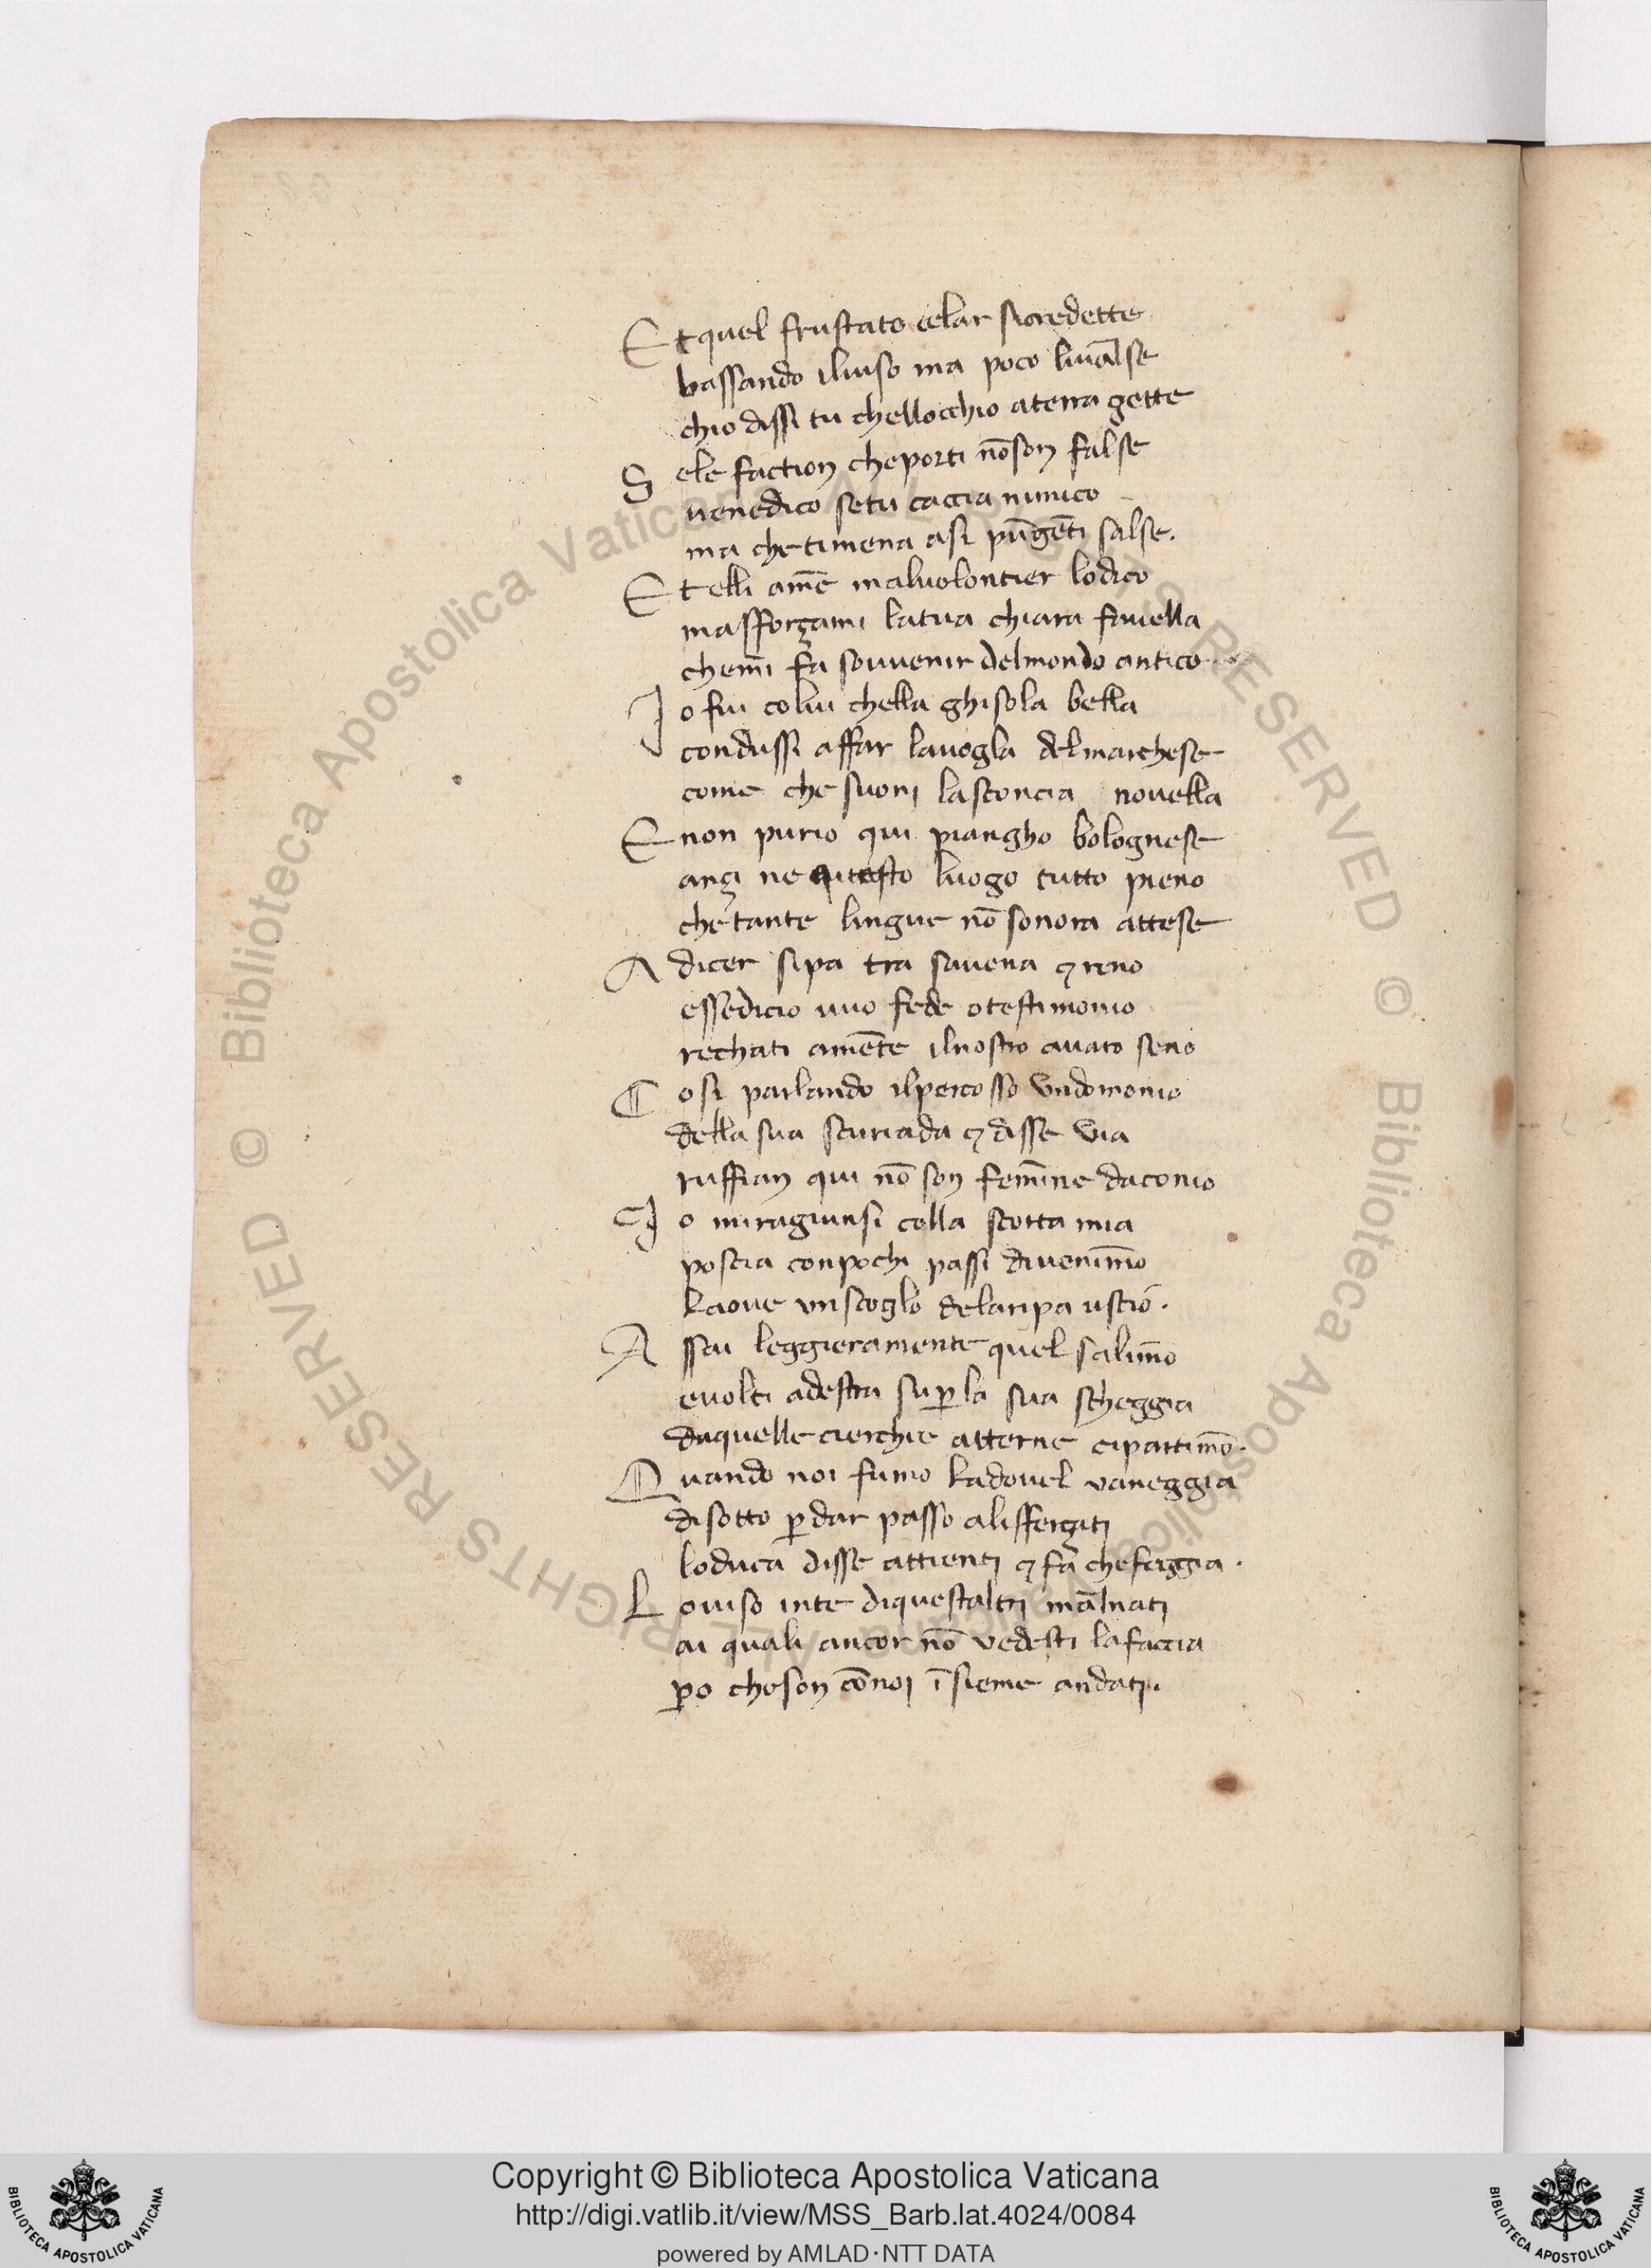 Et quel frustato celar sicredette
bassando iluiso ma poco liuālse
chio dissi tu chellocchio aterra gette
Sele faction cheporti nōson false
uenedico setu caccianimico
ma chetimena asi pūgēti salse.
Et elli amē maluolontier lodico
masforzami latua chiara fauella
chemī fa souuenir delmondo antico
Io fui colui chella ghisola bella
condussi affar lauogla delmarchese
come che suoni lasconcia nouella
E non purio qui piangho bolognese
anzi ne questo luogo tutto pieno
che tante lingue nō sonora attese
A dicer sipa tra sauena ⁊ reno
essedicio uuo fede otestimonio
rechati amēte ilnostro auaro seno
Cosi parlando ilpercosso vndomonio
della sua scuriada ⁊ disse via
ruffian qui nō son femīne daconio
Io miragiunsi colla scorta mia
poscia conpochi passi diuenimō
Laoue vnscoglo delaripa uscio.
Assai leggieramente quel salimō
euolti adestra suꝑla sua scheggia
daquelle cierchie atterne cipartimō.
Quando noi fumo Ladouel vaneggia
disotto ꝑdar passo alisferzati
loduca disse attienti ⁊ fa cheferggia.
Louiso inte diquestaltri mālnati
ai quali ancor nō vedesti lafaccia
ꝑo cheson cōnoi īsieme andati.
© Biblioteca Apostolica Vaticana ALL RIGHTS RESERVED
© Biblioteca Apostolica Vaticana ALL RIGHTS RESERVED
Copyright © Biblioteca Apostolica Vaticana
http://digi.vatlib.it/view/MSS_Barb.lat.4024/0084
powered by AMLAD·NTT DATA
BIBLIOTECA APOSTOLICA VATICANA
BIBLIOTECA APOSTOLICA VATICANA